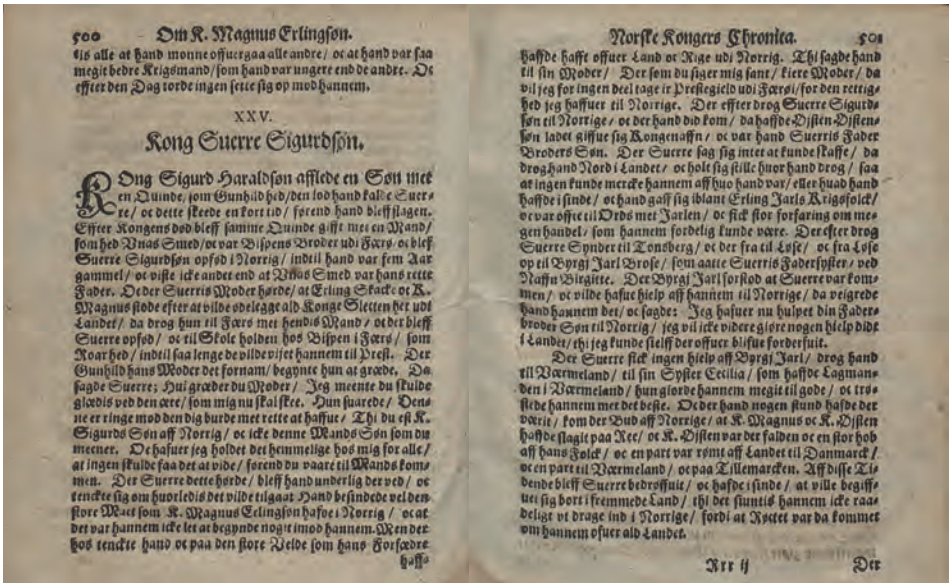 500 Om K. Magnus Erlingsøn.
tis alle at hand monne offuergaa alle andre/ oc at hand var saa
megit bedre Krigsmand/ som hand var ungere end de andre. Oc
effter den Dag torde ingen sette sig op mod hannem.
XXV.
Kong Suerre Sigurdsøn.
KOng Sigurd Haraldsøn afflede en Søn met
en Quinde/ som Gunhild hed/ den lod hand kalde Suer-
re/ oc dette skeede en kort tid/ førend hand bleff slagen.
Effter Kongens død bleff samme Quinde gifft met en Mand/
som hed Vnas Smed/ oc var Bispens Broder udi Færø/ oc bleff
Suerre Sigurdsøn opfød i Norrig/ indtil hand var fem Aar
gammel/ oc viste icke andet end at Vnas Smed var hans rette
Fader. Oc der Suerris Moder hørde/ at Erling Skacke oc K.
Magnus stode efter at vilde ødelegge ald Konge Sletten her udt
Landet/ da drog hun til Færø met hendis Mand/ oc der bleff
Suerre opfød/ oc til Skole holden hos Bispen i Færø/ som
Roar hed/ indtil saa lenge de vilde vijet hannem til Prest. Der
Gunhild hans Moder det fornam/ begynte hun at græde. Da
sagde Suerre; Hui græder du Moder/ Jeg meente du skulde
glædis ved den ære/ som mig nu skal skee. Hun suarede/ Den-
ne er ringe mod den dig burde met rette at haffue/ Thi du est K.
Sigurds Søn aff Norrig/ oc icke denne Mands Søn som du
meener. Oc hafuer jeg holdet det hemmelige hos mig for alle/
at ingen skulde faa det at vide/ førend du vaart til Mands kom-
men. Der Suerre dette hørde/ bleff hand underlig der ved/ oc
tenckte sig om huorledis det vilde tilgaat Hand besindede vel den
store Mact som K. Magnus Erlingsøn hafde i Norrig/ oc at
det var hannem icke let at begynde nogit imod hannem. Men der
hos tenckte hand oc paa den store Velde som hans Forfædre
haff-
Norske Kongers Chronica. 501
haffde hafft offuer Land oc Rige udi Norrig. Thi sagde hand
til sin Moder/ Der som du siger mig sant/ kiere Moder/ da
vil jeg for ingen deel tage ir Prestegield udi Færøi/ for den rettig-
hed jeg haffuer til Norrige. Der effter drog Suerre Sigurd-
søn til Norrige/ oc der hand did kom/ da hafde Øisten Øisten-
søn ladet giffue sig Kongenaffn/ oc var hand Suerris Fader
Broders Søn. Der Suerre sag sig intet at kunde skaffe/ da
drog hand Nord i Landet/ oc holt sig stille huor hand drog/ saa
at ingen kunde mercke hannem aff huo hand var/ eller huad hand
haffde i sinde/ oc hand gaff sig iblant Erling Jarls Krigsfolck/
oc var offte til Ords met Jarlen/ oc fick stor forfaring om me-
gen handel/ som hannem fordelig kunde være. Der efter drog
Suerre Synder til Tonsberg/ oc der fra til Løse/ oc fra Løse
op til Byrgj Jarl Brose/ som aatte Suerris Fadersyster/ ved
Naffn Birgitte. Der Byrgj Jarl forstod at Suerre var kom-
men/ oc vilde hafue hielp aff hannem til Norrige/ da veigrede
hand hannem det/ oc sagde: Jeg hafuer nu hulpet din Fader-
broder Søn til Norrig/ jeg vil icke videre giøre nogen hielp didt
i Landet/ thi jeg kunde sielff der offuer blifue forderfuit.
Der Suerre fick ingen hielp aff Byrgj Jarl/ drog hand
til Værmeland/ til sin Syster Cecilia/ som haffde Lagman-
den i Værmeland/ hun giorde hannem megit til gode/ oc trø-
stede hannem met det beste. Oc der hand nogen stund hafde der
værit/ kom der Bud aff Norrige/ at K. Magnus oc K. Øisten
haffde slagit paa Ree/ oc K. Øisten var der falden oc en stor hob
aff hans Folck/ oc en part var rømt aff Landet til Danmarck/
oc en part til Værmeland/ oc paa Tillemarcken. Aff disse Ti-
dende bleff Suerre bedrøffuit/ oc hafde i sinde/ at ville begiff-
uet sig bort i fremmede Land/ thi det siuntis hannem icke raa-
deligt vt drage ind i Norrige/ fordi at Røctet var da kommet
om hannem ofuer ald Landet.
Rrr ij Der